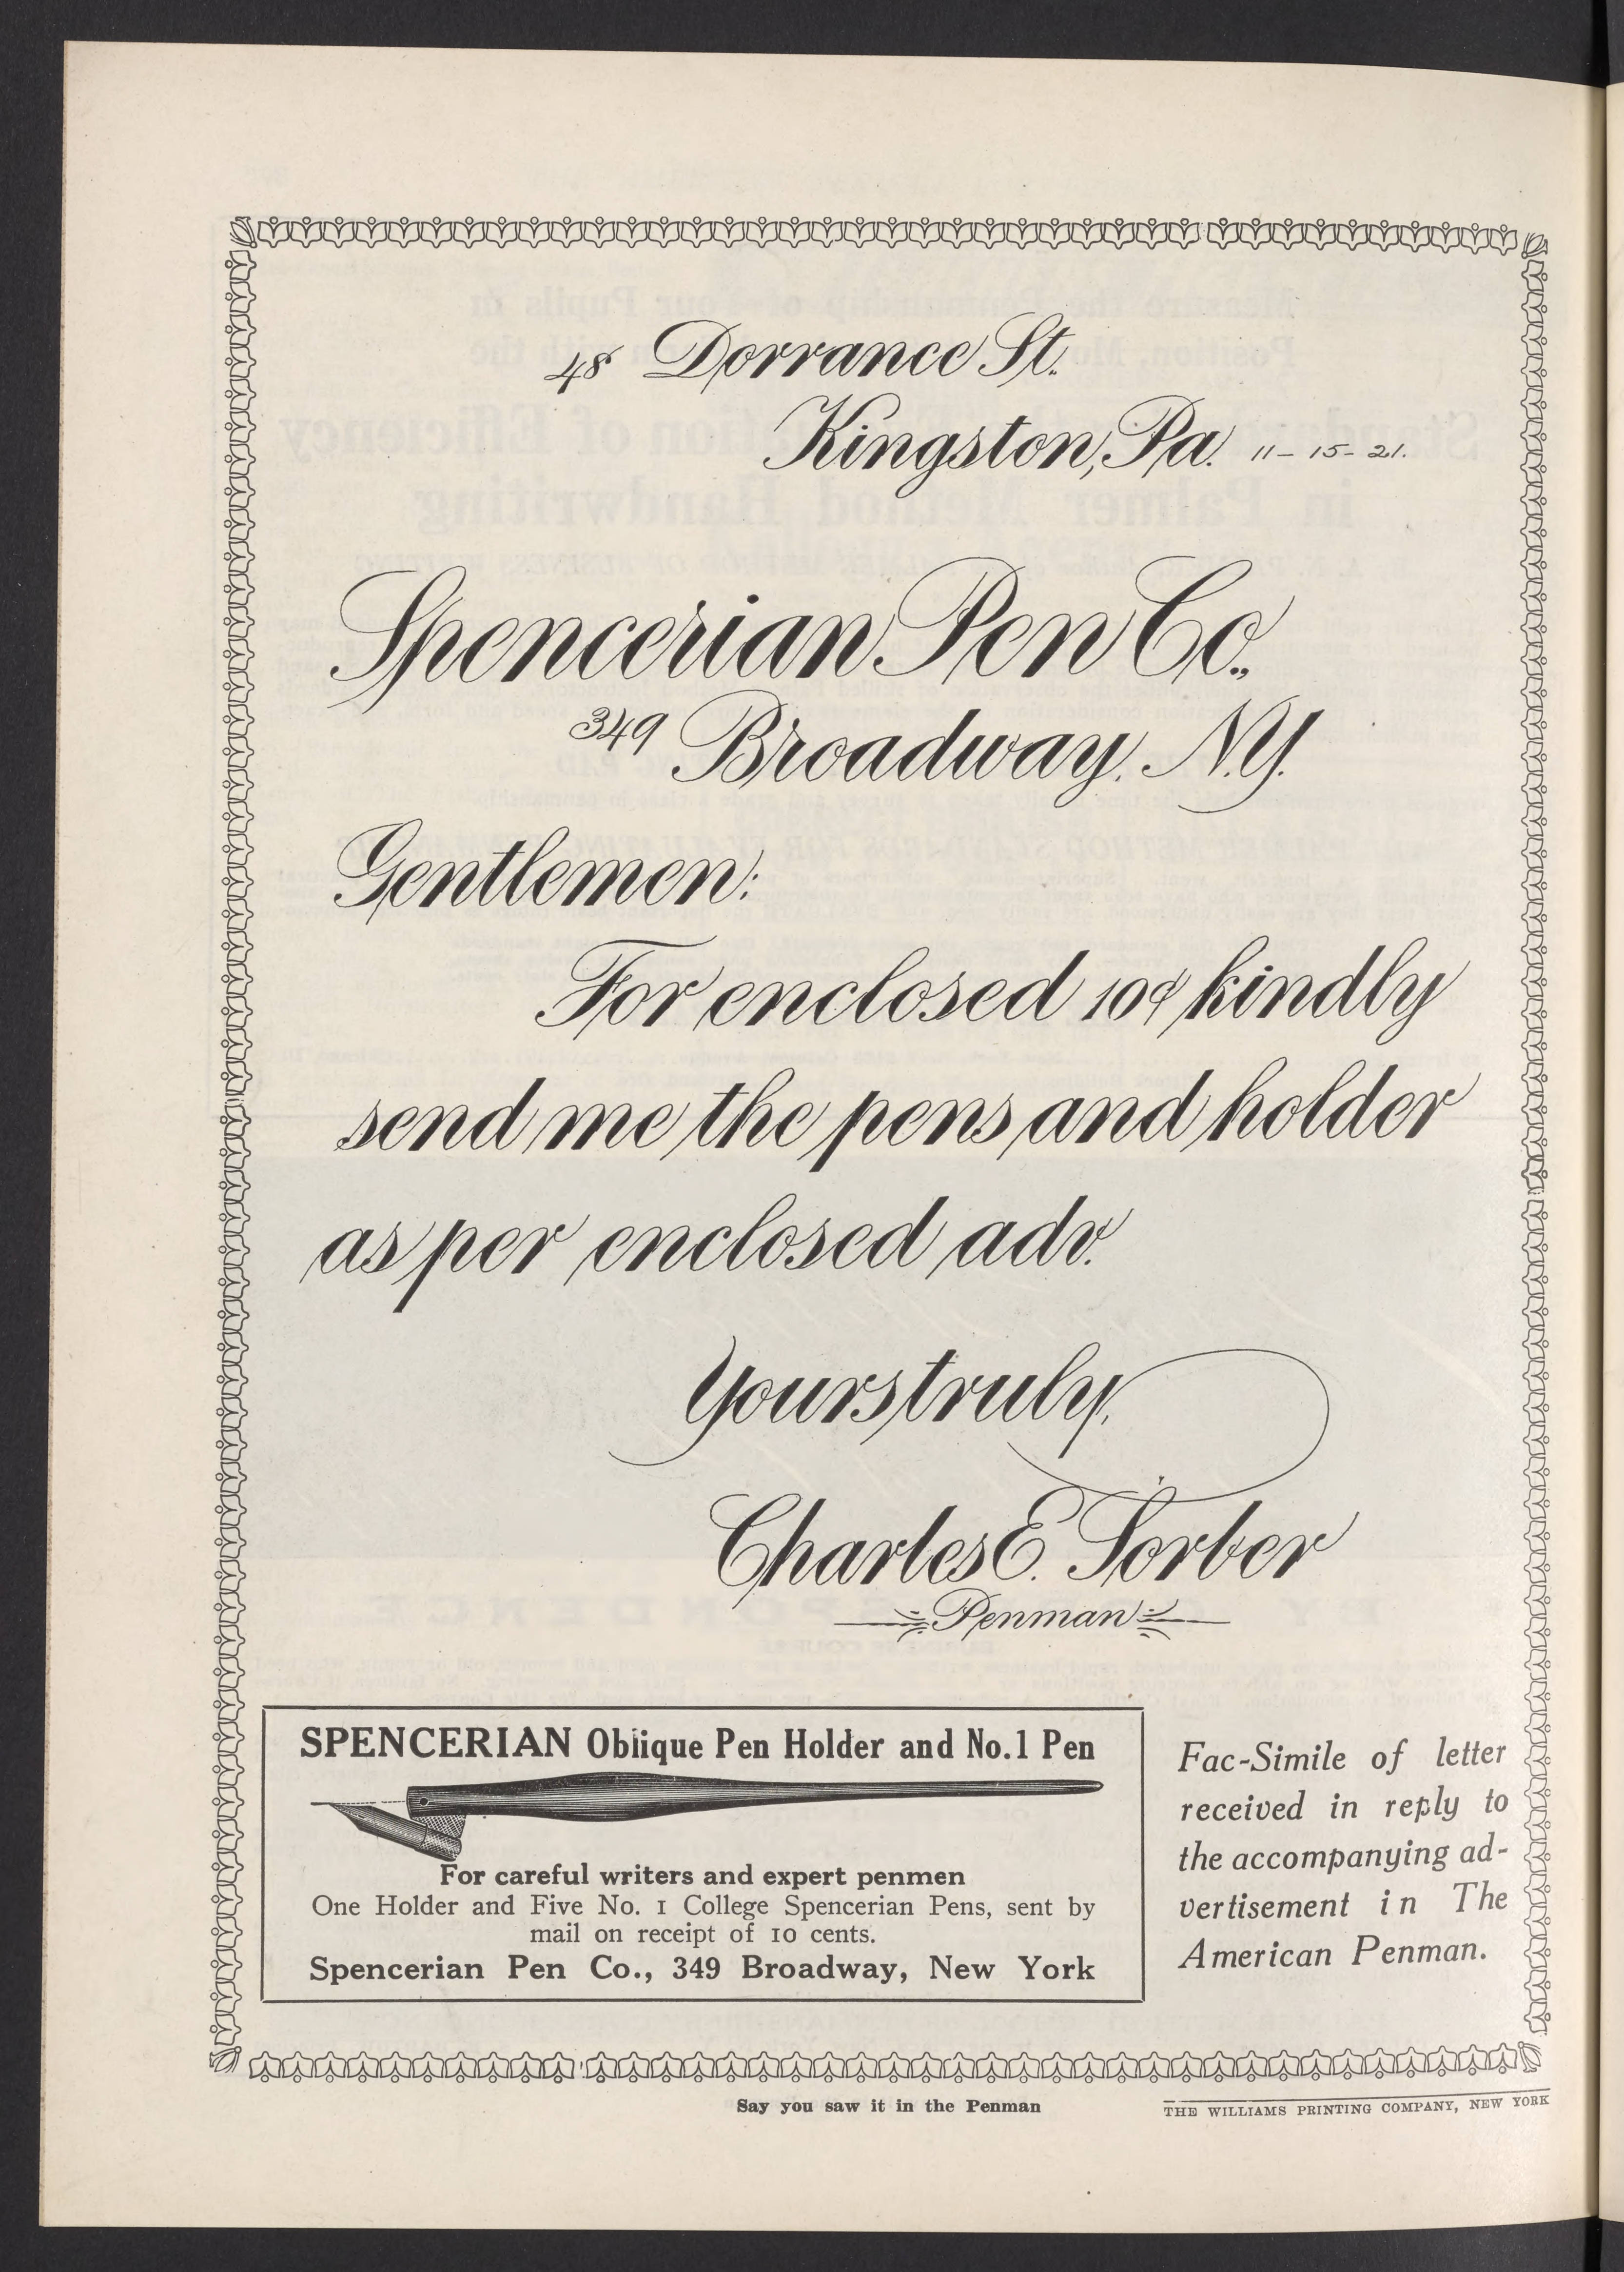 48 Dorrance St.
Kingston, Pa. 11-15-21.
Spencerian Pen Co.,
349 Broadway, N.Y.
Gentlemen:
For enclosed 10¢ kindly
send me the pens and holder
as per enclosed adv.
Yours truly,
Charles E. Sorber
Penman
SPENCERIAN Oblique Pen Holder and No.1 Pen
For careful writers and expert penmen
One Holder and Five No. 1 College Spencerian Pens, sent by
mail on receipt of 10 cents.
Spencerian Pen Co., 349 Broadway, New York
Fac-Simile of letter
received in reply to
the accompanying ad-
vertisement in The
American Penman.
Say you saw it in the Penman
THE WILLIAMS PRINTING COMPANY, NEW YORK